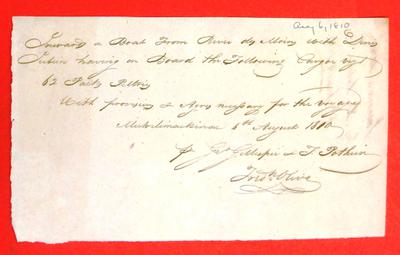 Aug 6, 1810
Inwards a Boat From River des Moins With
having on Board the Following Cargo viz
62 Packs Peltries
With provisions & Agrès necessary for the voyage
Michilimackinac 6th August 1810
pr Geo Gillespie & T Pothier
Fredk Oliva